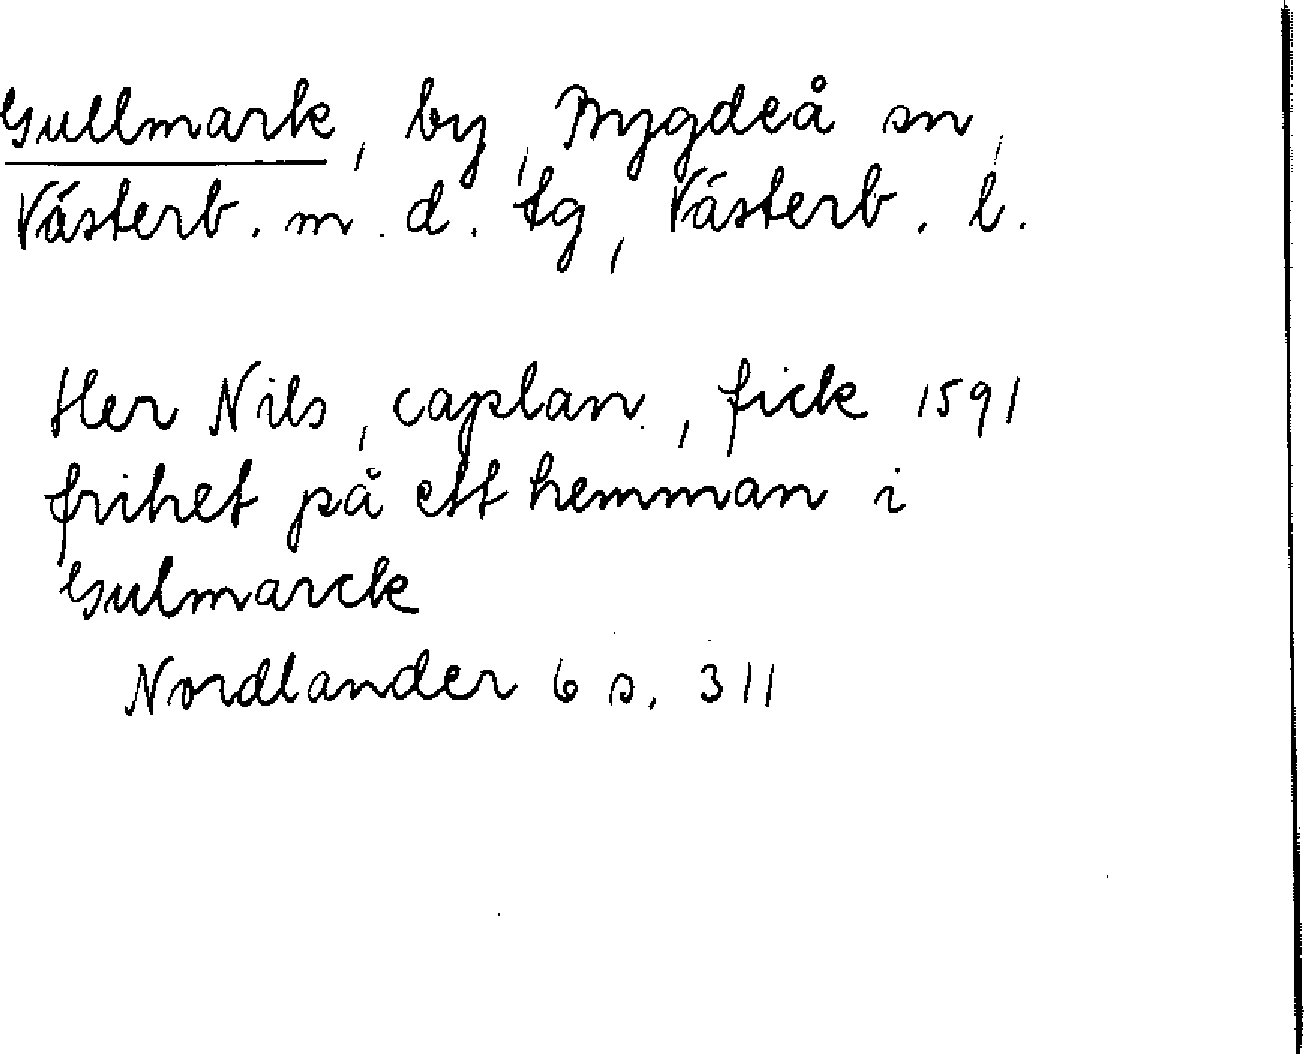 Gullmark, by, Bygdeå sn,
Västerb. m. d. tg, Västerb. l.
Her Nils, caplan, fick 1591
frihet på ett hemman i
Gulmarck
Nordlander 6 s. 311